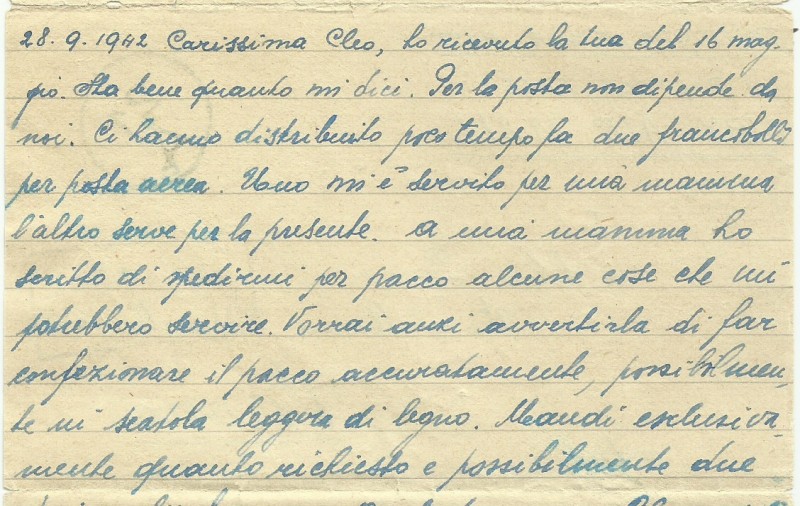 28.9.1942 Carissima Cleo, ho ricevuto la tua del 16 mag-
gio. Sta bene quanto mi dici. Per la posta non dipende da
noi. Ci hanno distribuito poco tempo fa due francobolli
per posta aerea. Uno mi è servito per mia mamma
l'altro serve per la presente. A mia mamma ho
scritto di spedirmi per pacco alcune cose che mi
potrebbero servire. Vorrai anzi avvertirla di far
confezionare il pacco accuratamente, possibilmen-
te in scatola leggera di legno. Mandi esclusiva-
mente quanto richiesto e possibilmente due